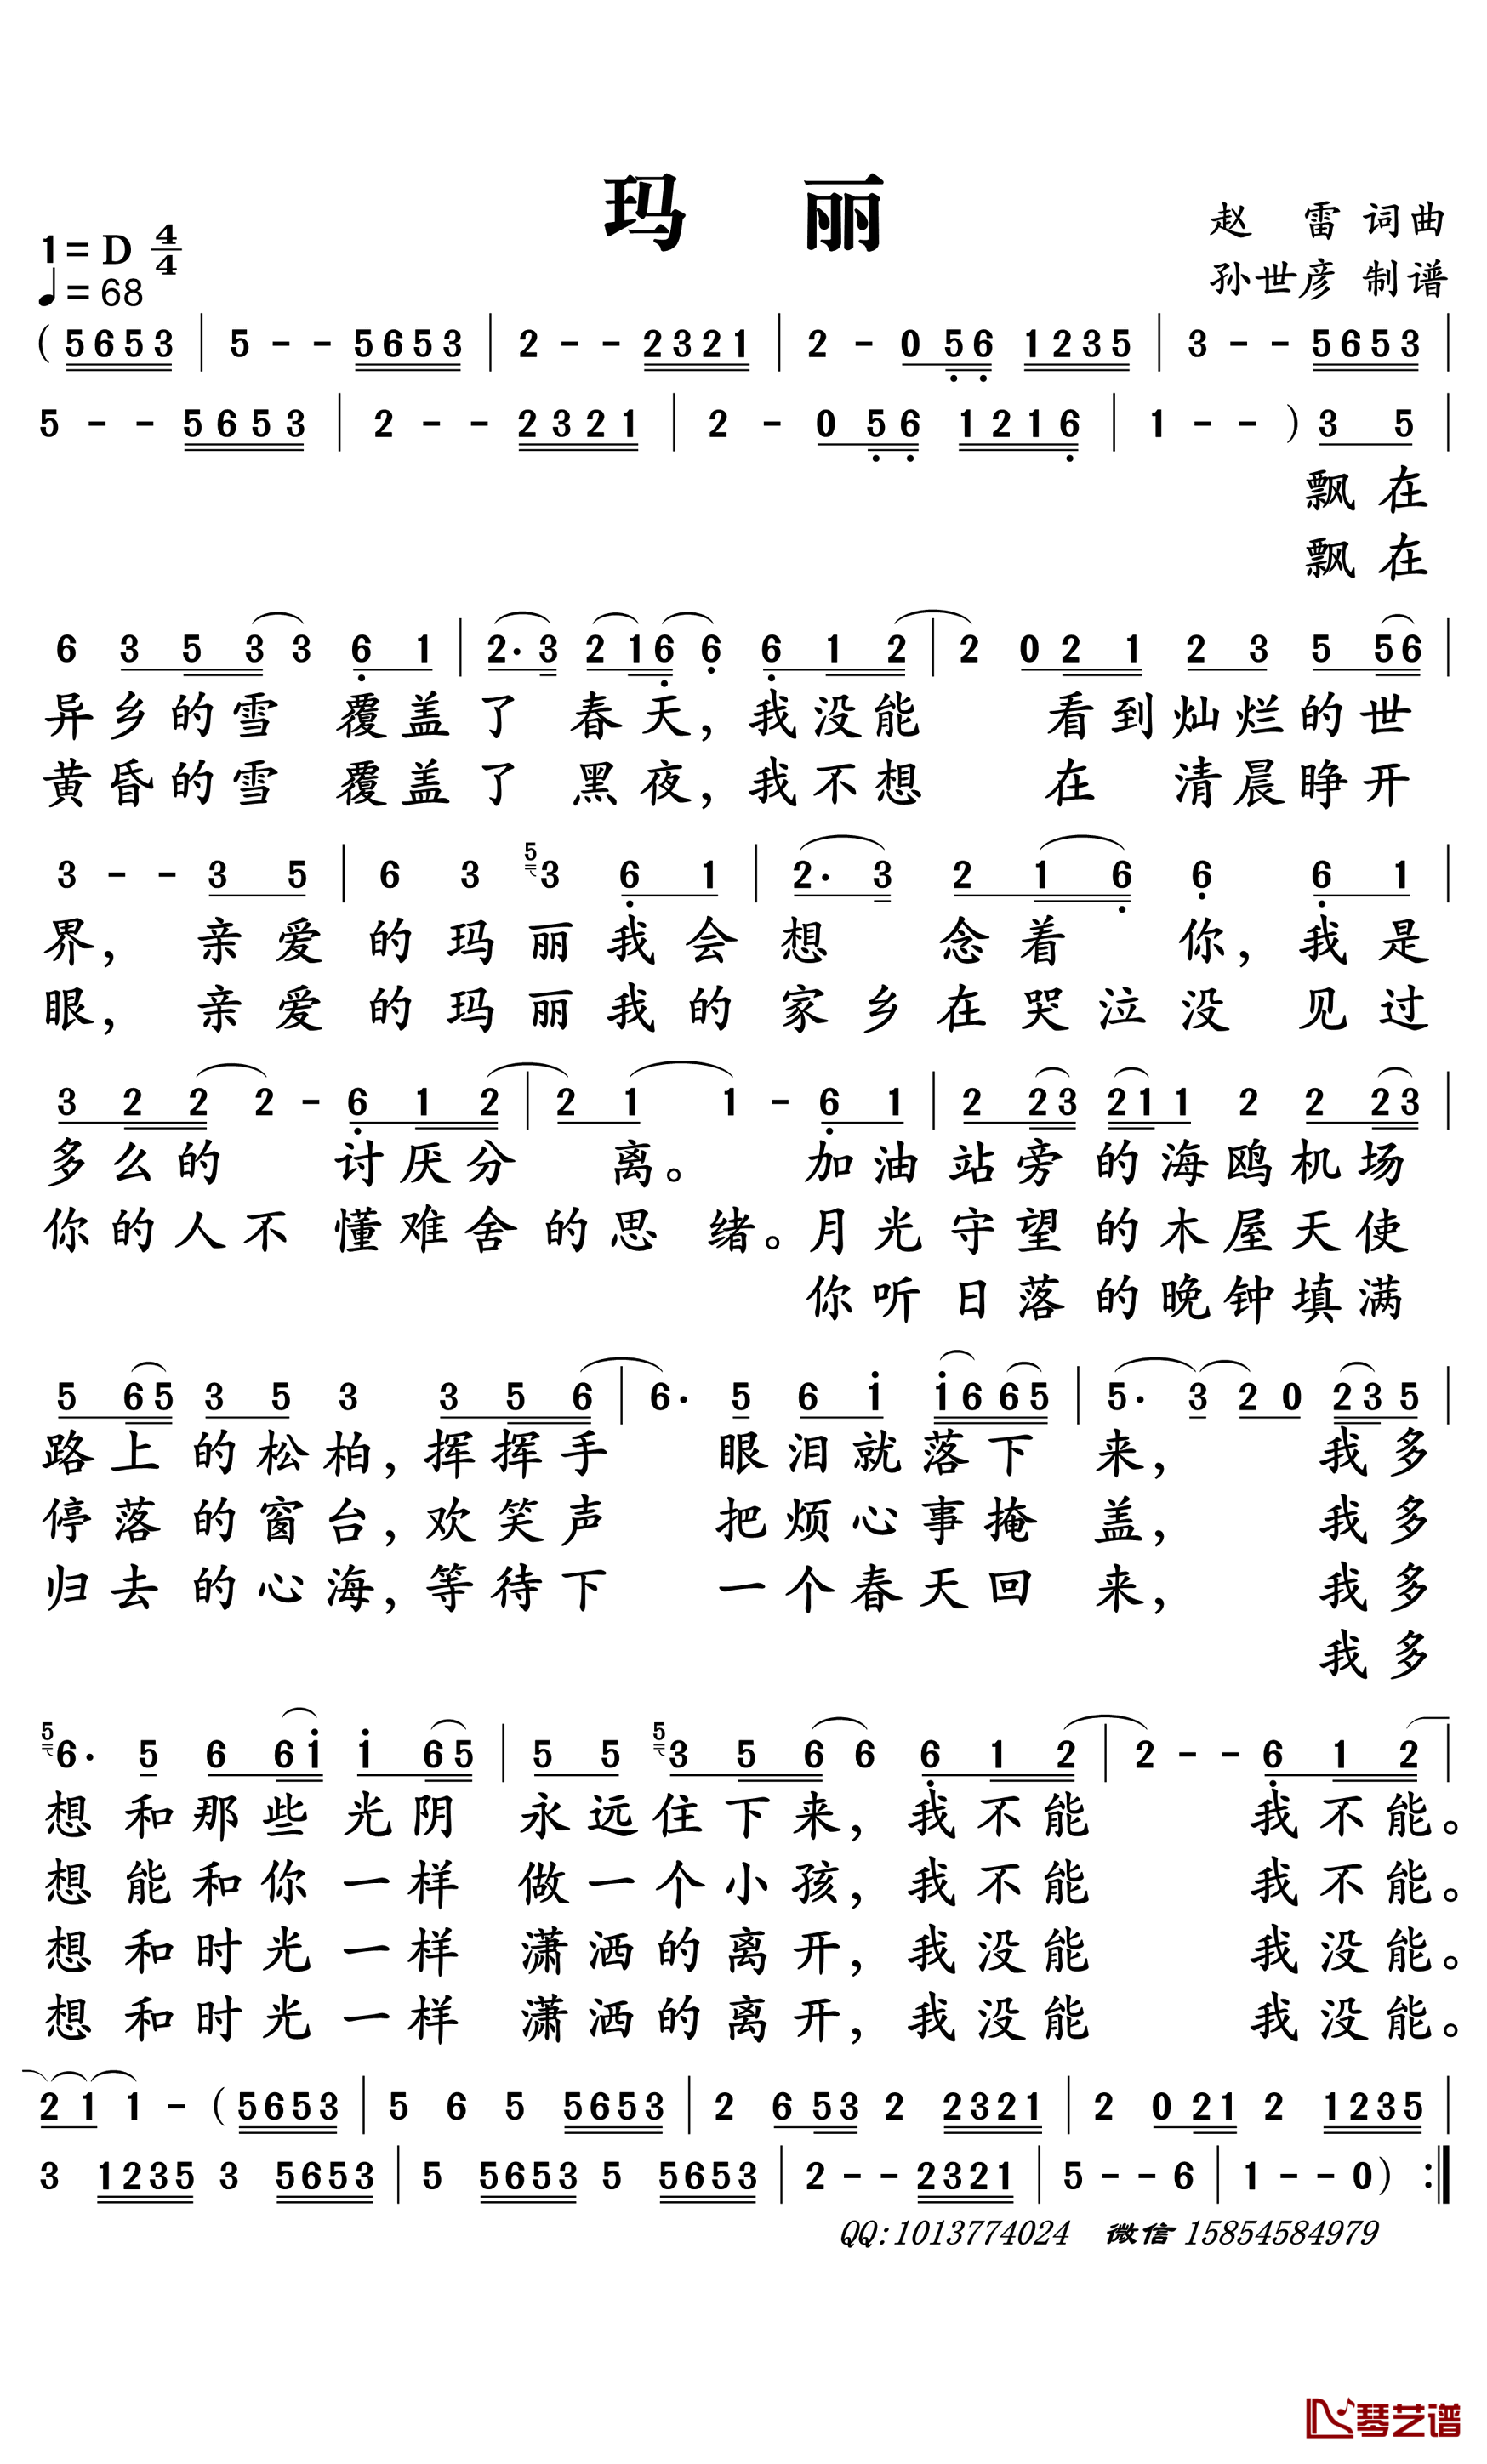 玛 丽
1=D 4/4
赵 雷 词曲
♩=68
孙世彦 制谱
( 5653 | 5 - - 5653 | 2 - - 2321 | 2 - 0 56 1235 | 3 - - 5653 |
5 - - 5653 | 2 - - 2321 | 2 - 0 56 1216 | 1 - - ) 3 5 |
飘在
飘在
6 3 5 3 3 6 1 | 2· 3 2 1 6 6 6 1 2 | 2 0 2 1 2 3 5 5 6 |
异乡的雪 覆盖了 春天，我没能 看到灿烂的世
黄昏的雪 覆盖了 黑夜，我不想 在 清晨睁开
3 - - 3 5 | 6 3 5 3 6 1 | 2· 3 2 1 6 6 6 1 |
界， 亲爱 的玛丽我会 想 念着 你，我是
眼， 亲爱 的玛丽我的 家乡在哭泣没 见过
3 2 2 2 - 6 1 2 | 2 1 1 - 6 1 | 2 2 3 2 1 1 2 2 2 3 |
多么的 讨厌分 离。 加油 站旁的海鸥机场
你的人不 懂难舍的思 绪。月光 守望的木屋天使
你听 日落的晚钟填满
5 6 5 3 5 3 3 5 6 | 6· 5 6 1 1 6 6 5 | 5· 3 2 0 2 3 5 |
路上 的松柏，挥挥手 眼泪就落下 来， 我多
停落 的窗台，欢笑声 把烦心事掩 盖， 我多
归去 的心海，等待下 一个春天回 来， 我多
我多
5 6· 5 6 6 1 1 6 5 | 5 5 5 3 5 6 6 6 1 2 | 2 - - 6 1 2 |
想 和那些 光阴 永远住下来，我不能 我不能。
想 能和你 一样 做一个小孩，我不能 我不能。
想 和时光 一样 潇洒的离开，我没能 我没能。
想 和时光 一样 潇洒的离开，我没能 我没能。
2 1 1 - ( 5653 | 5 6 5 5653 | 2 6 53 2 2321 | 2 0 21 2 1235 |
3 1235 3 5653 | 5 5653 5 5653 | 2 - - 2321 | 5 - - 6 | 1 - - 0 ) :|
QQ:1013774024 微信 15854584979
琴艺谱